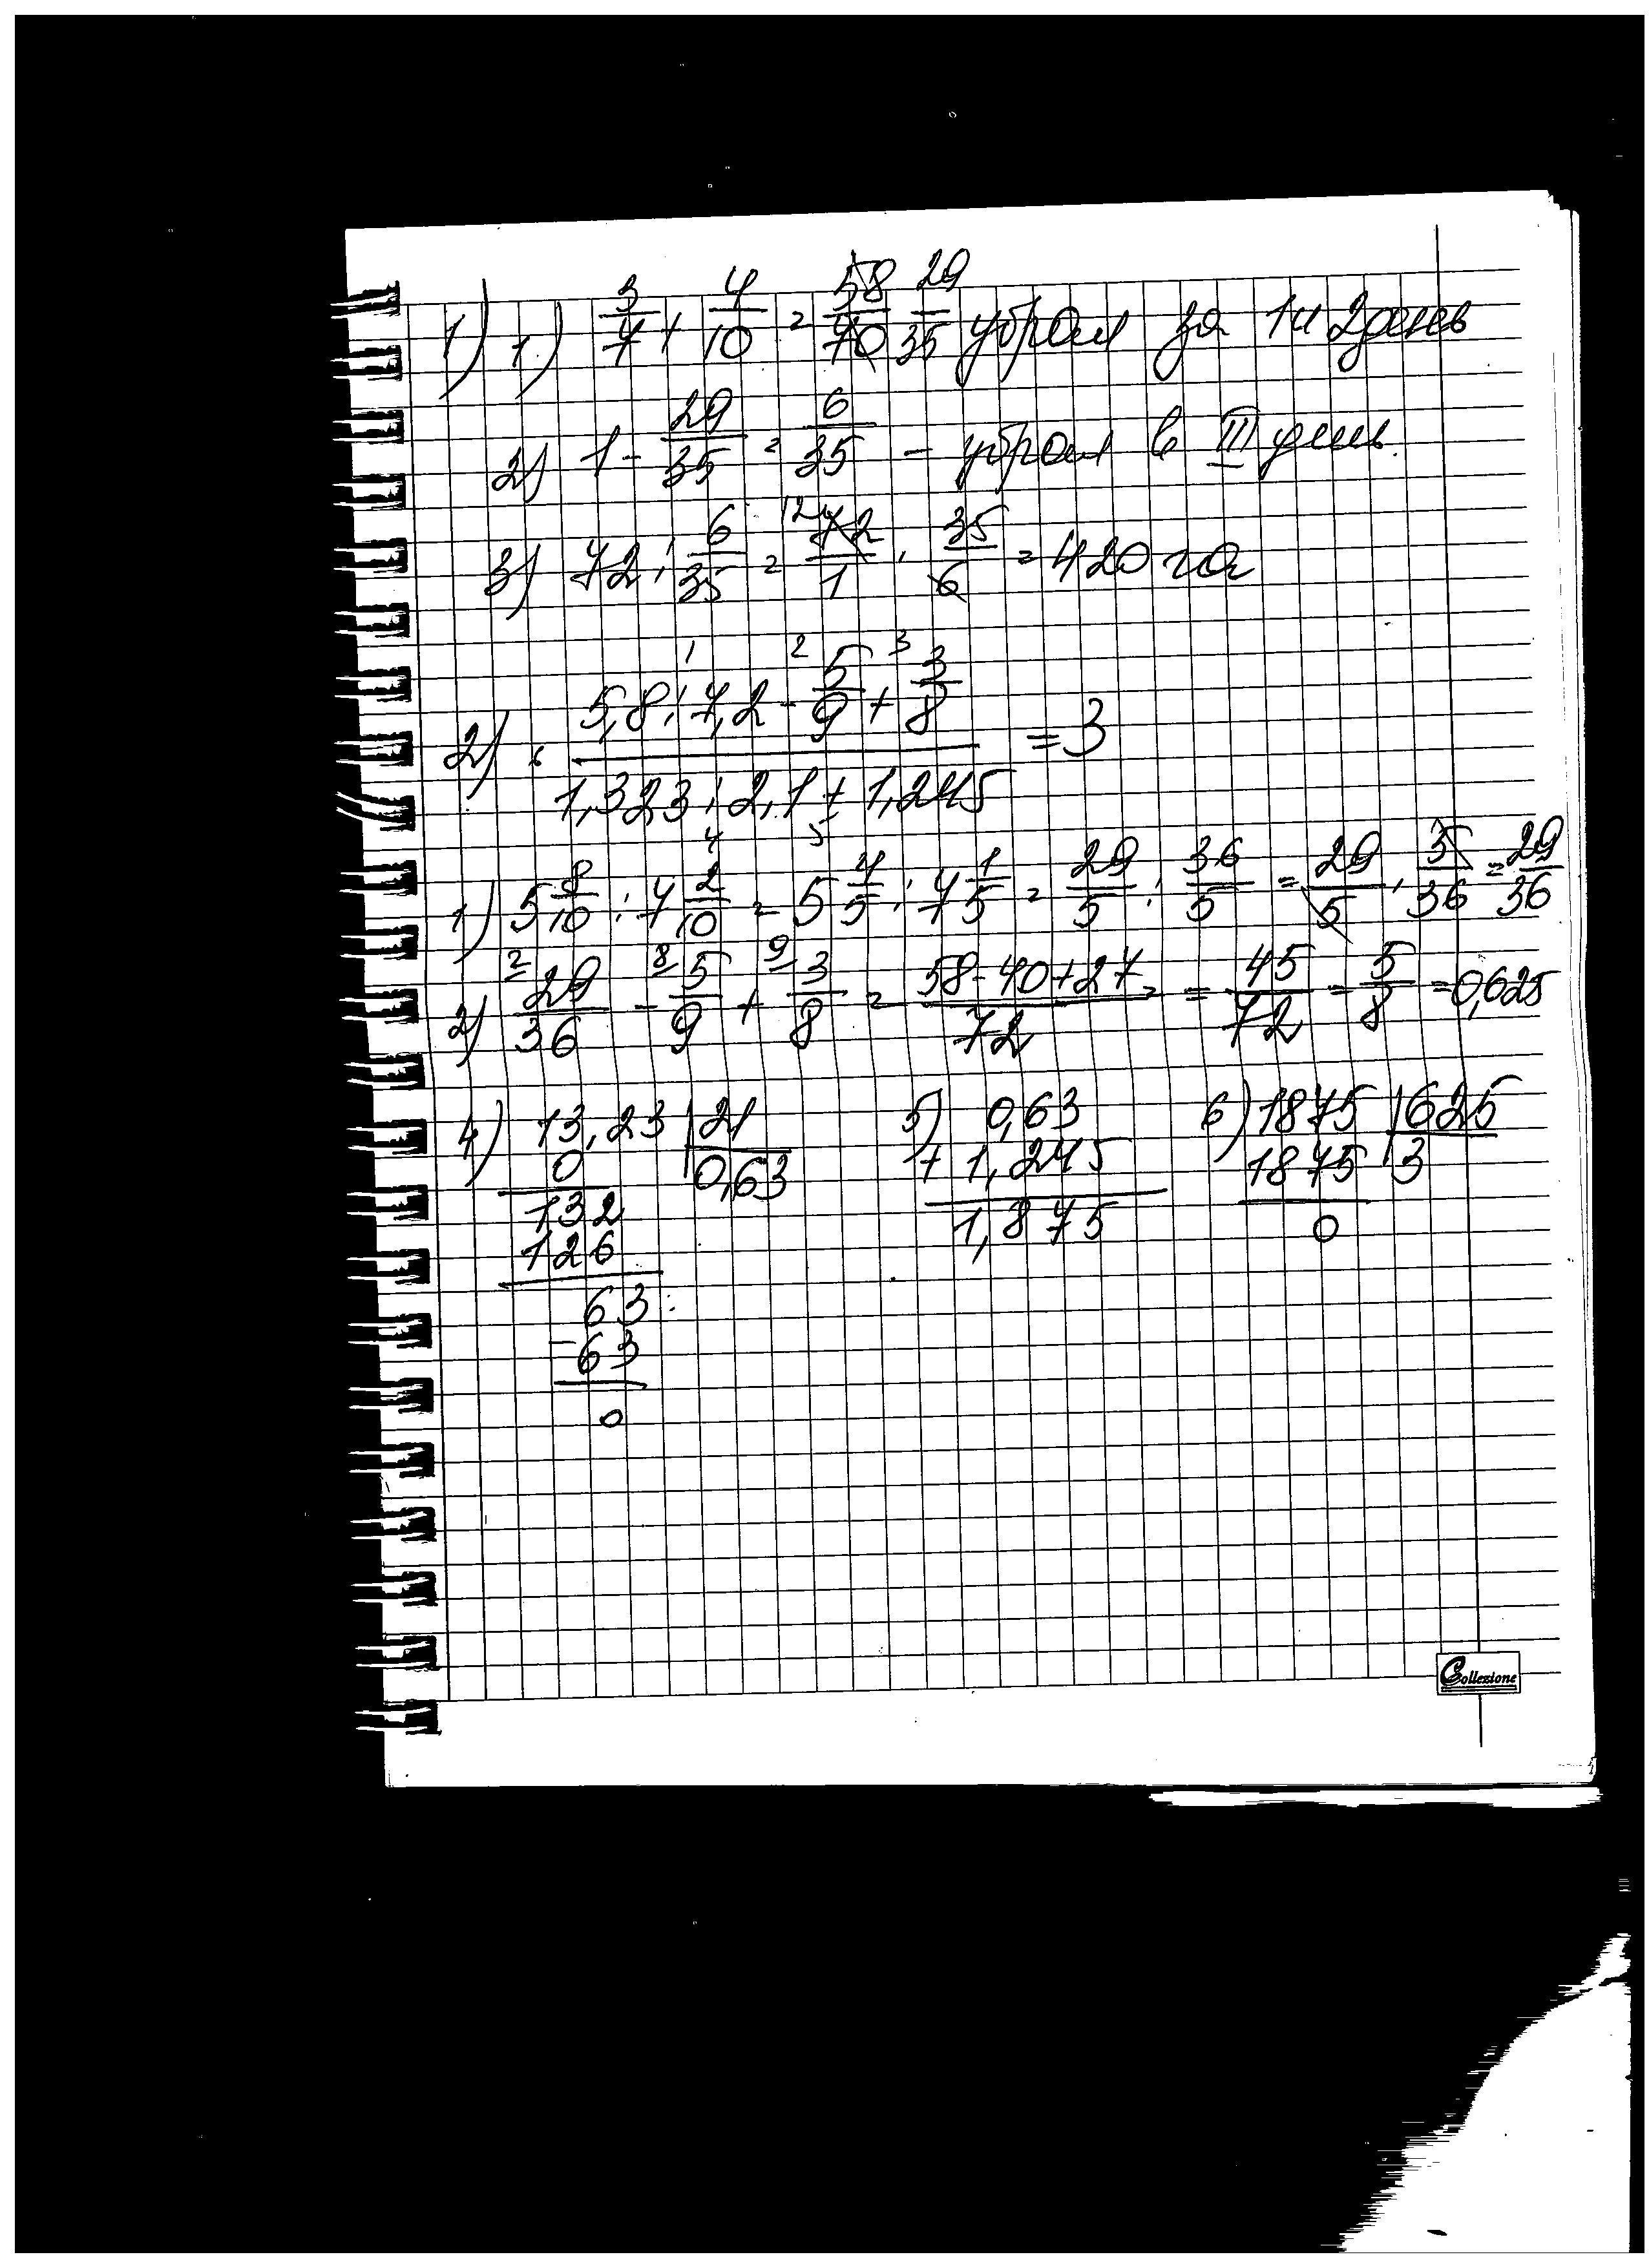 1) 1) 3/7 + 4/10 = 58/70 29/35 убрал за 1 и 2 день
2) 1 - 29/35 = 6/35 - убрал в III день.
3) 72 : 6/35 = 12 72/1 · 35/6 = 420 га
1 2 3
5,8 : 7,2 - 5/9 + 3/8
2) = 3
1,323 : 2,1 + 1,245
4 5
1) 5 8/10 : 7 2/10 = 5 4/5 : 7 1/5 = 29/5 : 36/5 = 29/5 · 5/36 = 29/36
2 8 9
2) 29/36 - 5/9 + 3/8 = 58-40+27/72 = 45/72 = 5/8 = 0,625
4) 13,23 | 21
0 0,63
132
126
63
-63
0
5) 0,63
+ 1,245
1,875
6) 1875 | 625
1875 3
0
Collezione